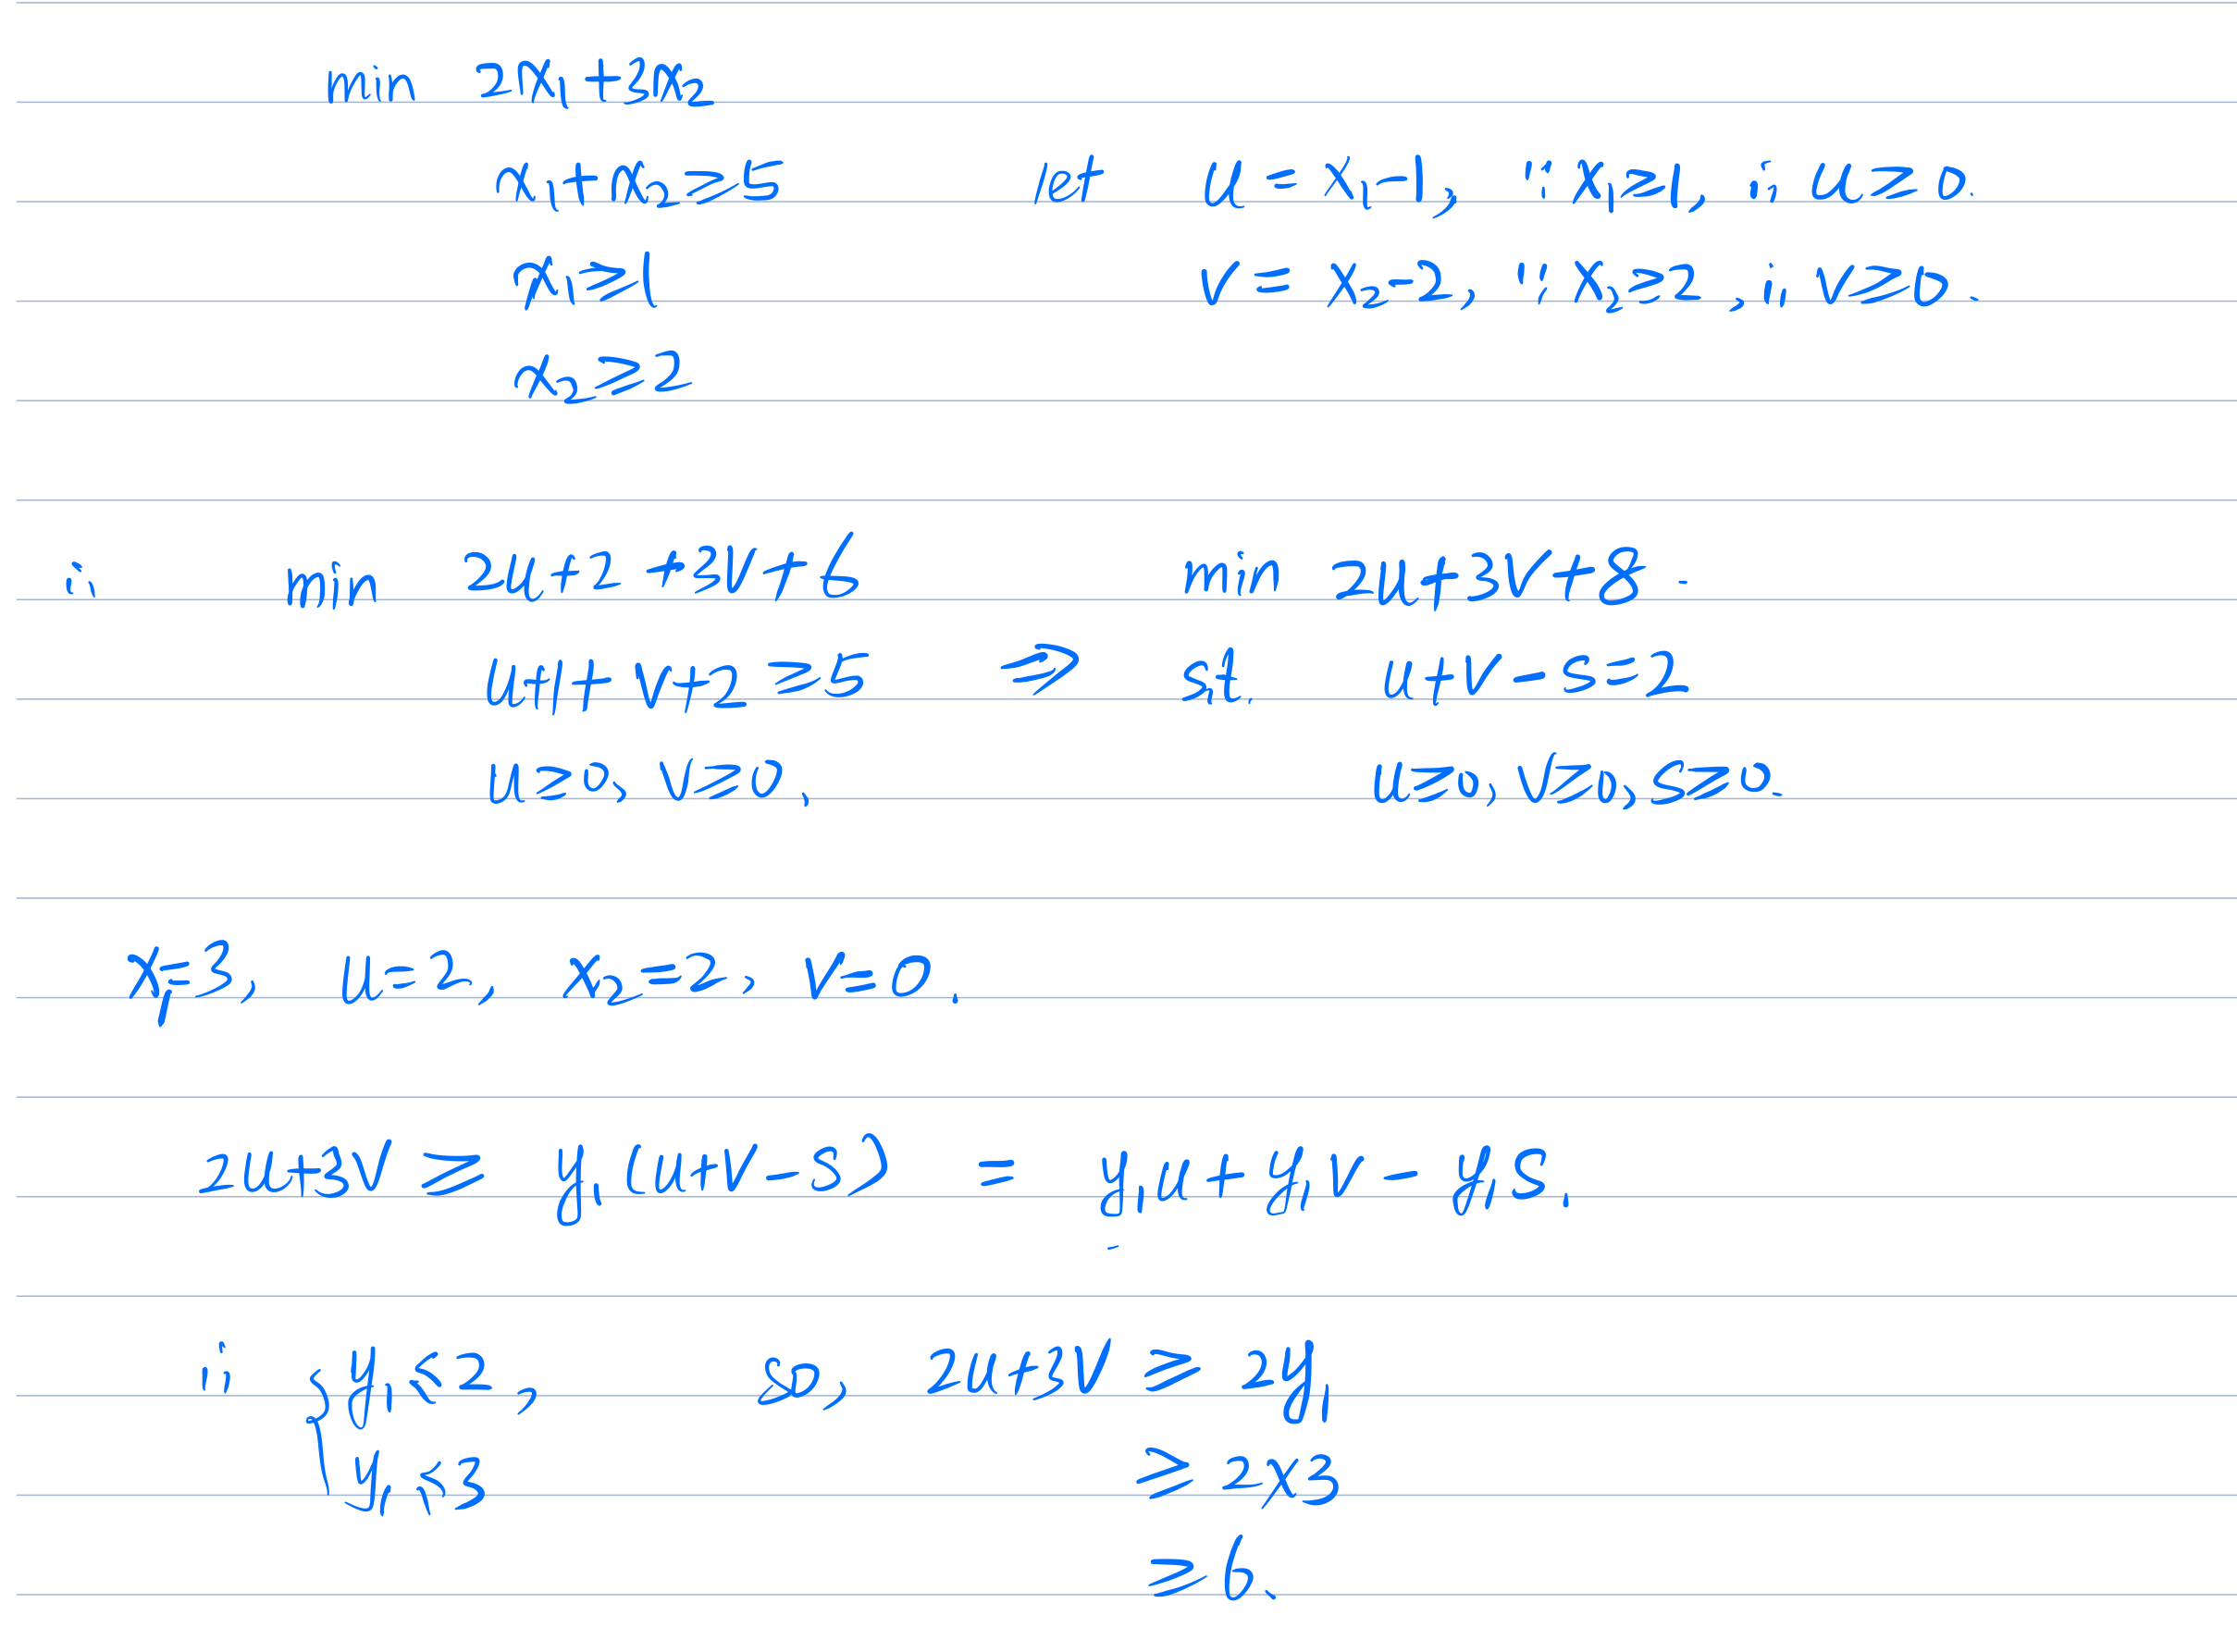 min 2x₁+3x₂
x₁+x₂≥5 let u=x₁-1, ∵ x₁≥1, ∴ u≥0.
x₁≥1 v=x₂-2, ∵ x₂≥2, ∴ v≥0.
x₂≥2
∴ min 2u+2+3v+6 min 2u+3v+8.
u+1+v+2≥5 ⇒ s.t. u+v-s=2
u≥0, v≥0, u≥0, v≥0, s≥0.
x₁=3, u=2, x₂=2, v=0.
2u+3v ≥ y₁(u+v-s) = y₁u+y₁v-y₁s.
∴ { y₁≤2, so, 2u+3v ≥ 2y₁
y₁≤3 ≥ 2×3
≥ 6.